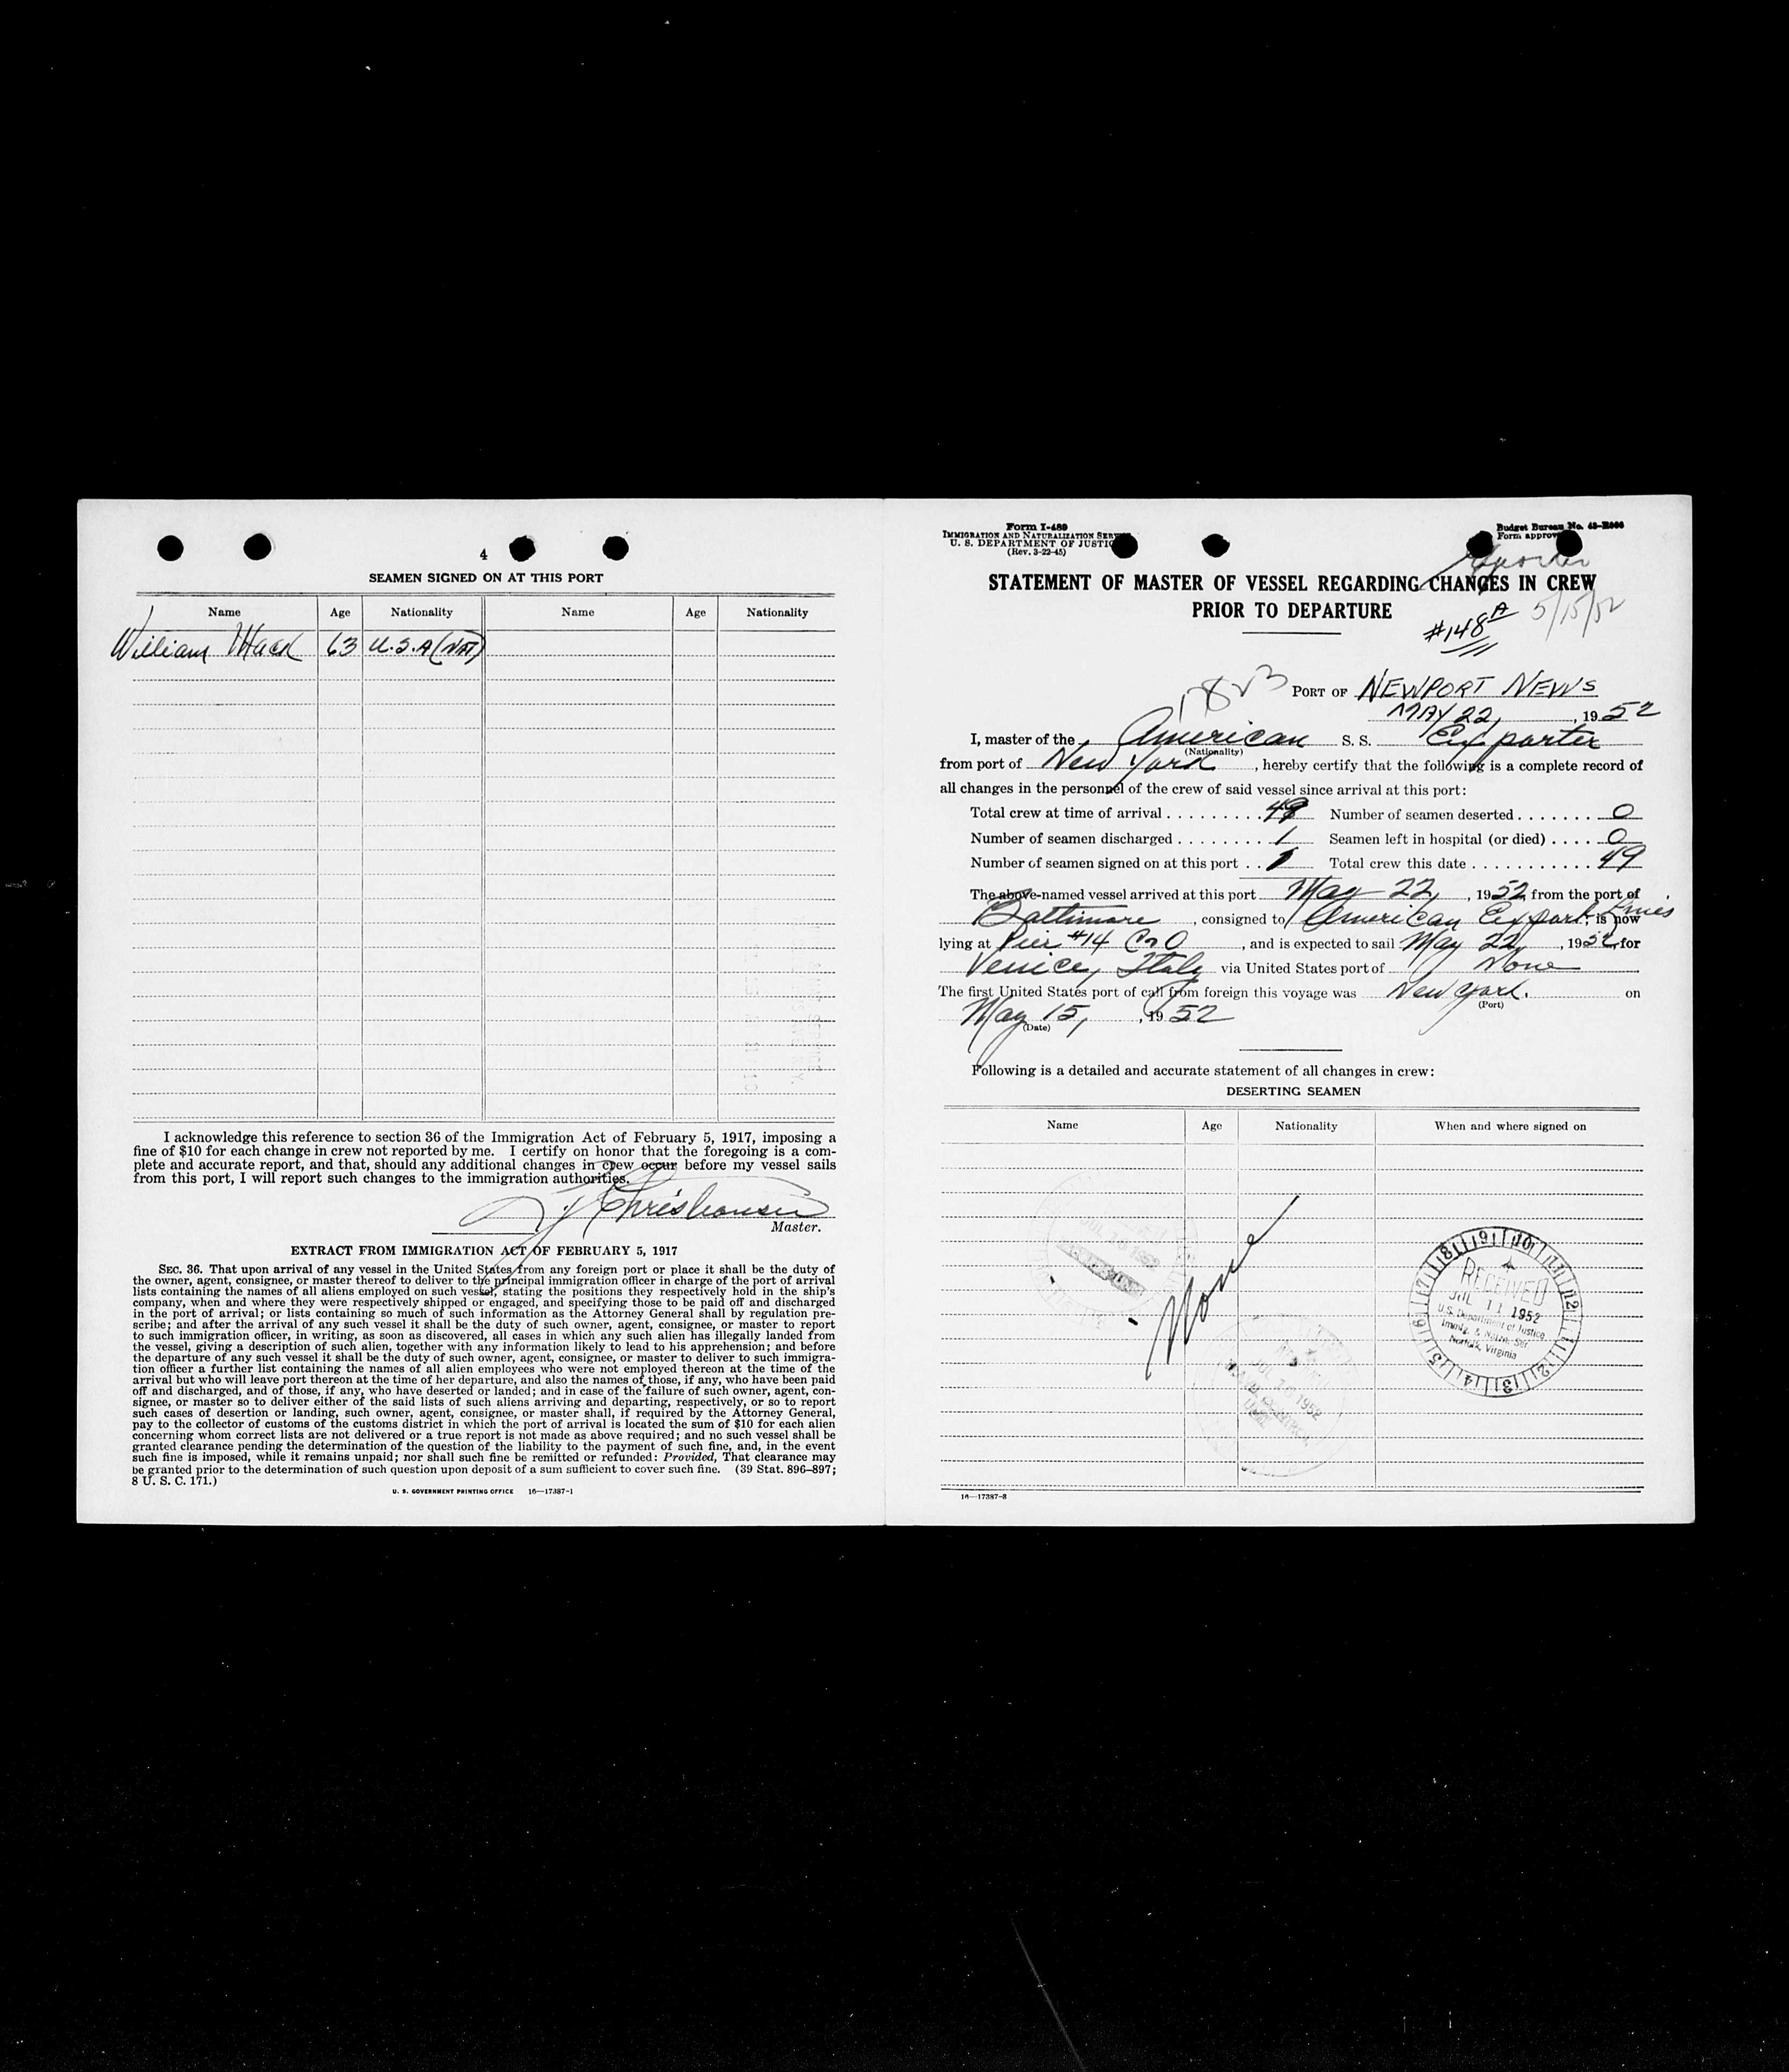 4
SEAMEN SIGNED ON AT THIS PORT
Name Age Nationality Name Age Nationality
William 63 U.S.A (NAT)
I acknowledge this reference to section 36 of the Immigration Act of February 5, 1917, imposing a
fine of $10 for each change in crew not reported by me. I certify on honor that the foregoing is a com-
plete and accurate report, and that, should any additional changes in crew occur before my vessel sails
from this port, I will report such changes to the immigration authorities.
Christiansen
Master.
EXTRACT FROM IMMIGRATION ACT OF FEBRUARY 5, 1917
SEC. 36. That upon arrival of any vessel in the United States from any foreign port or place it shall be the duty of
the owner, agent, consignee, or master thereof to deliver to the principal immigration officer in charge of the port of arrival
lists containing the names of all aliens employed on such vessel, stating the positions they respectively hold in the ship's
company, when and where they were respectively shipped or engaged, and specifying those to be paid off and discharged
in the port of arrival; or lists containing so much of such information as the Attorney General shall by regulation pre-
scribe; and after the arrival of any such vessel it shall be the duty of such owner, agent, consignee, or master to report
to such immigration officer, in writing, as soon as discovered, all cases in which any such alien has illegally landed from
the vessel, giving a description of such alien, together with any information likely to lead to his apprehension; and before
the departure of any such vessel it shall be the duty of such owner, agent, consignee, or master to deliver to such immigra-
tion officer a further list containing the names of all alien employees who were not employed thereon at the time of the
arrival but who will leave port thereon at the time of her departure, and also the names of those, if any, who have been paid
off and discharged, and of those, if any, who have deserted or landed; and in case of the failure of such owner, agent, con-
signee, or master so to deliver either of the said lists of such aliens arriving and departing, respectively, or so to report
such cases of desertion or landing, such owner, agent, consignee, or master shall, if required by the Attorney General,
pay to the collector of customs of the customs district in which the port of arrival is located the sum of $10 for each alien
concerning whom correct lists are not delivered or a true report is not made as above required; and no such vessel shall be
granted clearance pending the determination of the question of the liability to the payment of such fine, and, in the event
such fine is imposed, while it remains unpaid; nor shall such fine be remitted or refunded: Provided, That clearance may
be granted prior to the determination of such question upon deposit of a sum sufficient to cover such fine. (39 Stat. 896–897;
8 U. S. C. 171.)
U. S. GOVERNMENT PRINTING OFFICE 16—17387-1
Form I-489
IMMIGRATION AND NATURALIZATION
U. S. DEPARTMENT OF
(Rev. 3-22-45)
Budget Bureau No.
Form
Exporter
STATEMENT OF MASTER OF VESSEL REGARDING CHANGES IN CREW
PRIOR TO DEPARTURE
#148A 5/15/52
1823
PORT OF NEWPORT NEWS
MAY 22, 1952
I, master of the American S. S. Exporter
(Nationality)
from port of New York, hereby certify that the following is a complete record of
all changes in the personnel of the crew of said vessel since arrival at this port:
Total crew at time of arrival 49 Number of seamen deserted 0
Number of seamen discharged 1 Seamen left in hospital (or died) 0
Number of seamen signed on at this port 1 Total crew this date 49
The above-named vessel arrived at this port May 22, 1952, from the port of
Baltimore, consigned to American Export Lines, is now
lying at Pier #14 C n O, and is expected to sail May 22, 1952, for
Venice, Italy via United States port of None
The first United States port of call from foreign this voyage was New York. on
(Port)
May 15, 1952
(Date)
Following is a detailed and accurate statement of all changes in crew:
DESERTING SEAMEN
Name Age Nationality When and where signed on
None
RECEIVED
JUL 11 1952
U.S. Department of Justice
Immig. & Natzn. Ser
Norfolk, Virginia
JUL 1952
JUL 1952
16—17387-8